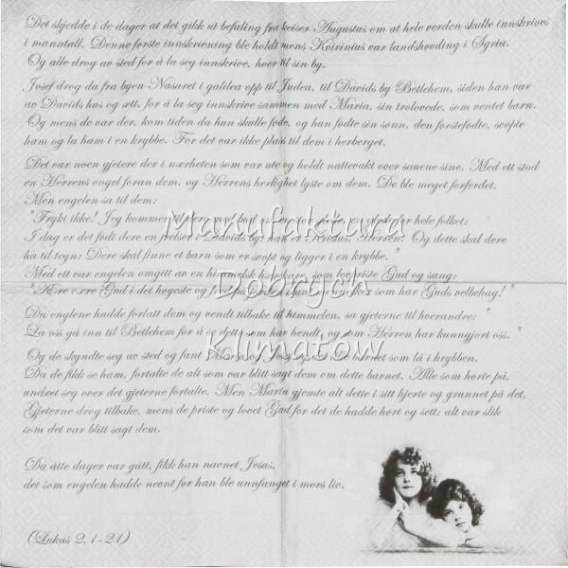 Det skjedde i de dager at det gikk ut befaling fra keiser Augustus om at hele verden skulle innskrives
i manntall. Denne første innskrivning ble holdt mens Kvirinius var landshøvding i Syria.
Og alle drog av sted for å la seg innskrive, hver til sin by.
Josef drog da fra byen Nasaret i galilea opp til Judea, til Davids by Betlehem, siden han var
av Davids hus og ætt, for å la seg innskrive sammen med Maria, sin trolovede, som ventet barn.
Og mens de var der, kom tiden da hun skulle føde, og hun fødte sin sønn, den førstefødte, svøpte
ham og la ham i en krybbe. For det var ikke plass til dem i herberget.
Det var noen gjetere der i nærheten som var ute og holdt nattevakt over sauene sine. Med ett stod
en Herrens engel foran dem, og Herrens herlighet lyste om dem. De ble meget forferdet.
Men engelen sa til dem:
"Frykt ikke! Jeg kommer til dere med bud om en stor glede, en glede for hele folket:
I dag er det født dere en frelser i Davids by; han er Kristus, Herren. Og dette skal dere
ha til tegn: Dere skal finne et barn som er svøpt og ligger i en krybbe."
Med ett var engelen omgitt av en himmelsk hærskare, som lovpriste Gud og sang:
"Ære være Gud i det høyeste og fred på jorden blant mennesker som har Guds velbehag!"
Da englene hadde forlatt dem og vendt tilbake til himmelen, sa gjeterne til hverandre: "
La oss gå inn til Betlehem for å se dette som har hendt, og som Herren har kunngjort oss."
Og de skyndte seg av sted og fant Maria og Josef og det lille barnet som lå i krybben.
Da de fikk se ham, fortalte de alt som var blitt sagt dem om dette barnet. Alle som hørte på,
undret seg over det gjeterne fortalte. Men Maria gjemte alt dette i sitt hjerte og grunnet på det.
Gjeterne drog tilbake, mens de priste og lovet Gud for det de hadde hørt og sett; alt var slik
som det var blitt sagt dem.
Da åtte dager var gått, fikk han navnet Jesus,
det som engelen hadde nevnt før han ble unnfanget i mors liv.
(Lukas 2, 1-21)
Manufaktura
Dobrych
Klimatów